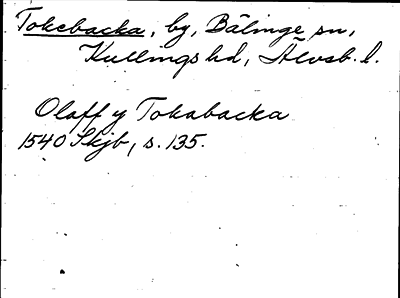 Tokebacka, by, Bälinge sn,
Kullings hd, Älvsb. l.
Olaff y Tokabacka
1540 Skjb, s. 135.